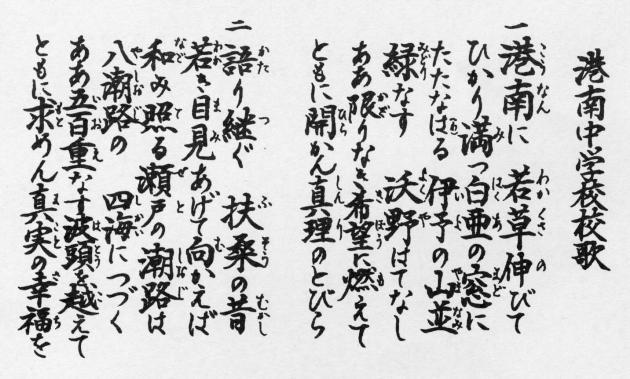 港南中学校校歌
一 港南に 若草伸びて
ひかり満つ白亜の窓に
たたなはる 伊予の山並
緑なす 沃野はてなし
ああ限りなき希望に燃えて
ともに開かん真理のとびら
二 語り継ぐ 扶桑の昔
若き目見あげて向かえば
和み照る瀬戸の潮路は
八潮路の 四海につづく
ああ五百重なす波頭を越えて
ともに求めん真実の幸福を